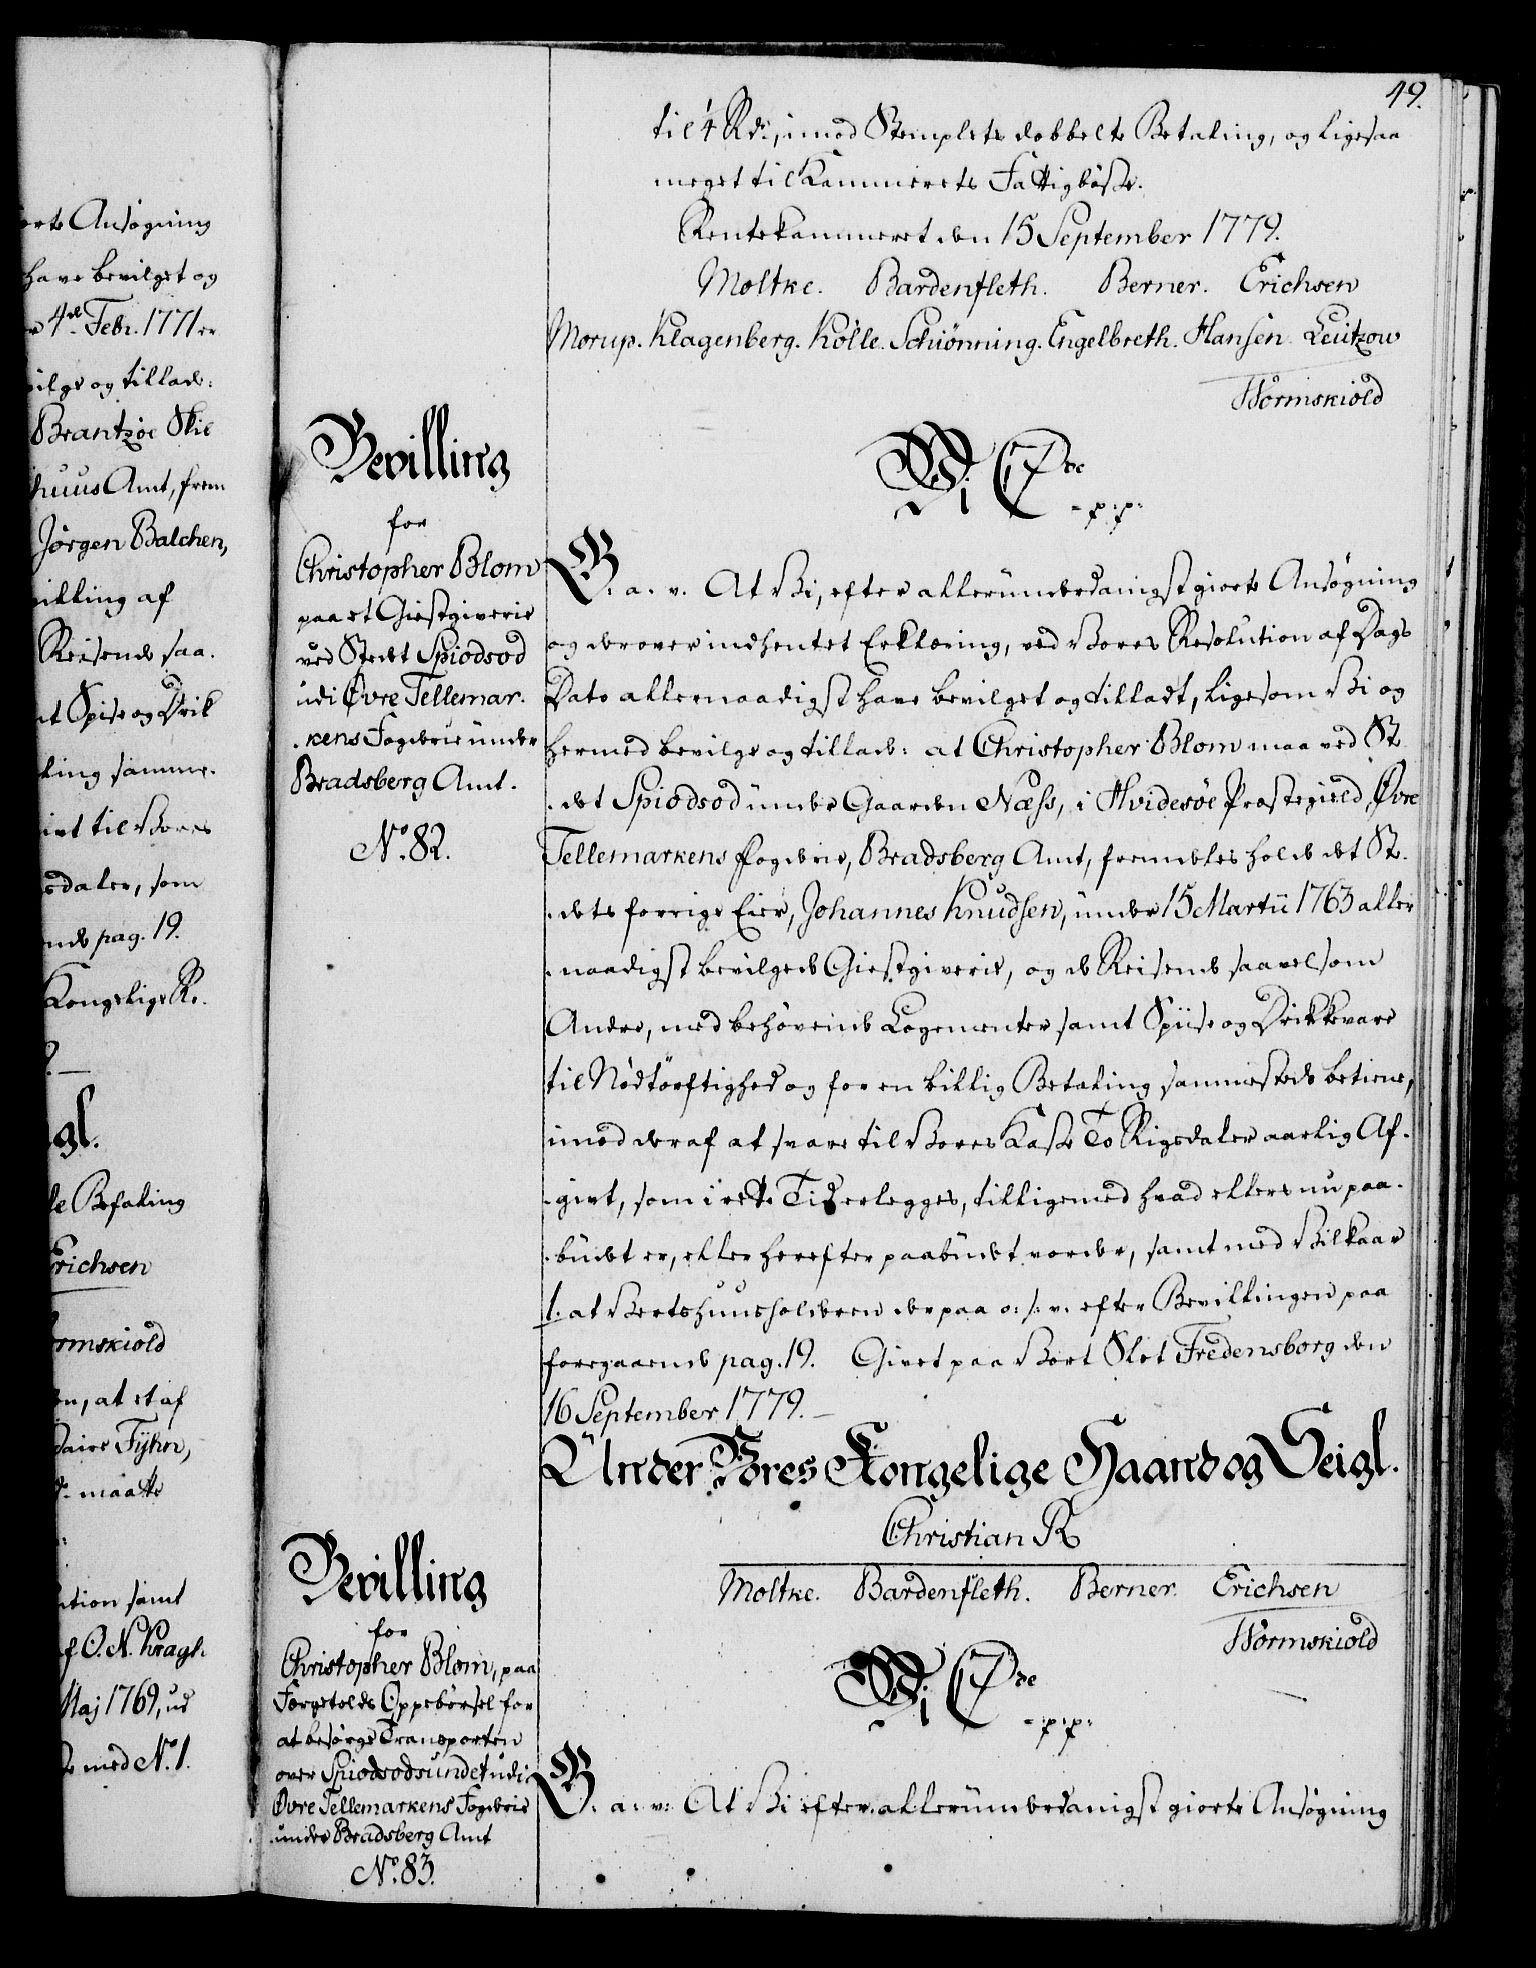 orte Ansøgning
have bevilget og
4de Febr. 1771 er
vilge og tillade:
Brantzøe Skie
huus Amt, frem
Jørgen Balchen,
villing af
Reisende saa.
nt Spise og Drik
ling samme.
ivt til Vores
sdaler, som
ende pag. 19.
Kongelige Re.
gl.
le Befaling
Erichsen
ormskiold
en, at et af
Daire Fyhn,
maatte
ution samt
f O. N. Kragh
Maj 1769, ud
med No. 1.
49.
til 4 Rdr., imod Stemplets dobbelte Betaling, og ligesaa
meget til Kammerets Fattigbösse.
Rentekammeret den 15 September 1779.
Moltke. Bardenfleth. Berner. Erichsen
Morup. Klagenberg. Kölle. Schiönning. Engelbreth. Hansen. Leützow
Wormskiold
Bevilling
for
Christopher Blom
paa et Giestgiverie
ved Stedet Spiodsod
udi Øvre Tellemar.
.kens Fogderie under
Bradsberg Amt.
No. 82.
Vi C 7de
- p: p:
G. a. v. At Vi, efter alleründerdanigst giorte Ansøgning
og derover indhentet Erklæring, ved Vores Resolution af Dags
Dato allernaadigst have bevilget og tilladt, ligesom Vi og
hermed bevilge og tillade: at Christopher Blom maa ved Ste
.det Spiodsod ünder Gaarden Næss, i Hvidesøe Præstegield, Øvre
Tellemarkens Fogderie, Bradsberg Amt, fremdeles holde det Ste.
.dets forrige Eier, Johannes Knudsen, ünder 15 Martii 1763 aller
.naadigst bevilgede Giestgiverie, og de Reisende saavelsom
Andre, med behøvende Logementer samt Spiise og Drikkevare
til Nødtörftighed og for en billig Betaling sammesteds betiene,
imod deraf at svare til Vores Kasse To Rigsdaler aarlig Af.
.givt, som i rette Tid erlegges, tilligemed hvad ellers nu paa.
.büdet er, eller herefter paabüdet vorder, samt med Vilkaar
1. at Vertshuusholderen der paa o: s: v. efter Bevillingen paa
foregaaende pag. 19. Givet paa Vort Slot Fredensborg den
16 September 1779. —
Under Vores Kongelige Haand og Seigl.
Christian R
Moltke. Bardenfleth. Berner. Erichsen
Wormskiold
Bevilling
for
Christopher Blom, paa
Færgetolds Oppebörsel for
at besørge Transporten
over Spiodsodsundet udi
Øvre Tellemarkens Fogderie
.under Bradsberg Amt
No. 83.
Vi C 7de
- p: p:
G. a. v: At Vi efter alleründerdanigst giorte Ansøgning